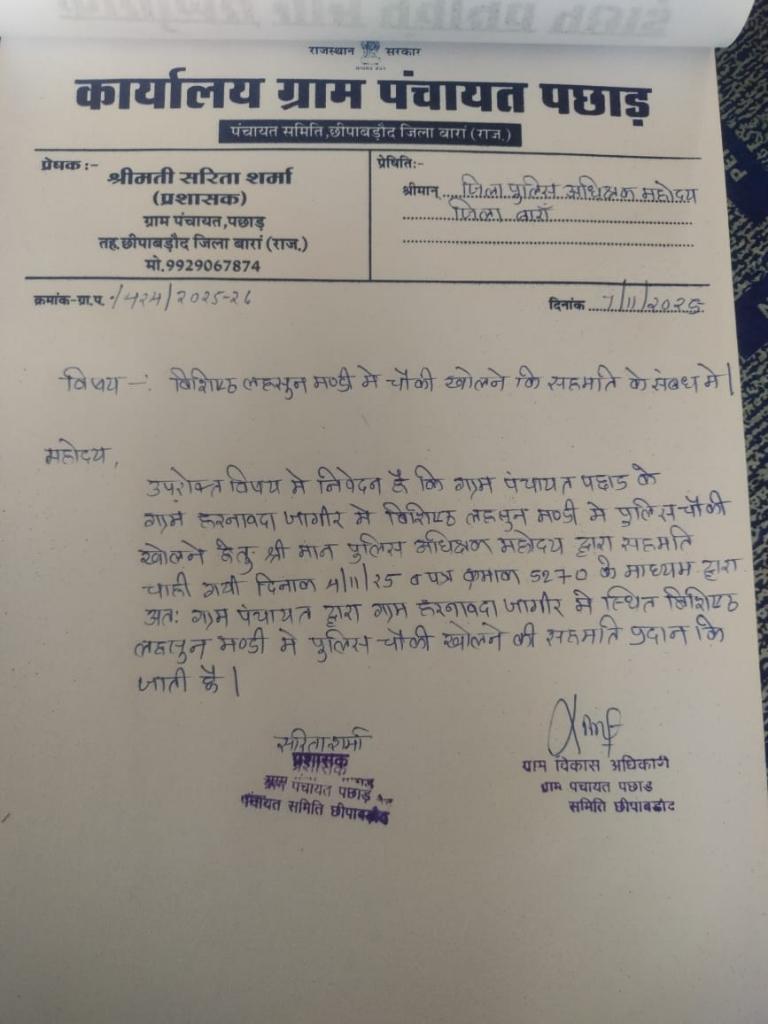 राजस्थान सरकार
कार्यालय ग्राम पंचायत पछाड़
पंचायत समिति,छीपाबड़ौद जिला बारां (राज.)
प्रेषक:-
श्रीमती सरिता शर्मा
(प्रशासक)
ग्राम पंचायत,पछाड़
तह.छीपाबड़ौद जिला बारां (राज.)
मो.9929067874
प्रेषिति:-
श्रीमान् जिला पुलिस अधिक्षक महोदय
जिला बारां
क्रमांक-ग्रा.प. /424/2025-26
दिनांक 7/11/2025
विषय -: विशिष्ठ लहसुन मण्डी मे चौकी खोलने कि सहमति के संबध मे |
महोदय,
उपरोक्त विषय मे निवेदन है कि ग्राम पंचायत पछाड के
ग्राम हरनावदा जागीर मे विशिष्ठ लहसुन मण्डी मे पुलिस चौकी
खोलने हेतु श्री मान पुलिस अधिक्षक महोदय द्वारा सहमति
चाही गयी दिनांक 4/11/25 व पत्र क्रमांक 5270 के माध्यम द्वारा
अतः ग्राम पंचायत द्वारा ग्राम हरनावदा जागीर मे स्थित विशिष्ठ
लहसुन मण्डी मे पुलिस चौकी खोलने की सहमति प्रदान कि
जाती है |
सरिता शर्मा
प्रशासक
ग्राम पंचायत पछाड़
पंचायत समिति छीपाबड़ौद
ग्राम विकास अधिकारी
ग्राम पचायत पछाड
समिति छीपाबडौद